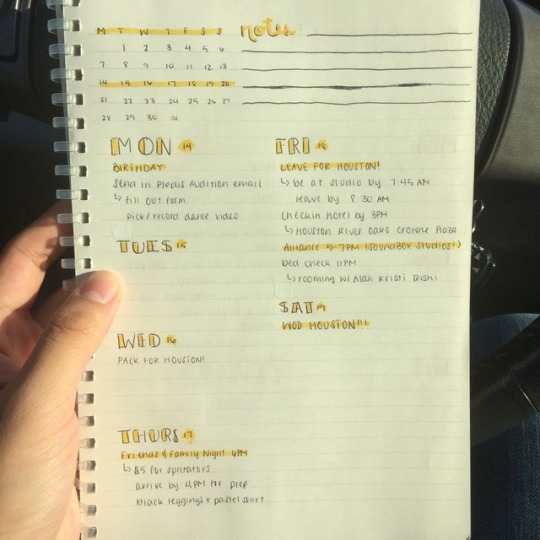 M T W T F S S
1 2 3 4 5 6
7 8 9 10 11 12 13
14 15 16 17 18 19 20
21 22 23 24 25 26 27
28 29 30 31
notes
MON 14
BIRTHDAY
Send in Pledis Audition email
↳ Fill out form
pick/record dance video
TUES 15
WED 16
PACK FOR HOUSTON!
THURS 17
Friends & Family Night 6PM
↳ $5 for spectators
arrive by 4PM for prep
black leggings + pastel shirt
FRI 18
LEAVE FOR HOUSTON!
↳ be at studio by 7:45 AM
leave by 8:30 AM
Checkin hotel by 3PM
↳ Houston River Oaks Crowne Plaza
Alliance 5-7PM (Soundbox Studios!)
bed check 11PM
↳ rooming w/ Alan Kristi Rishi
SAT 19
WOD HOUSTON!!!